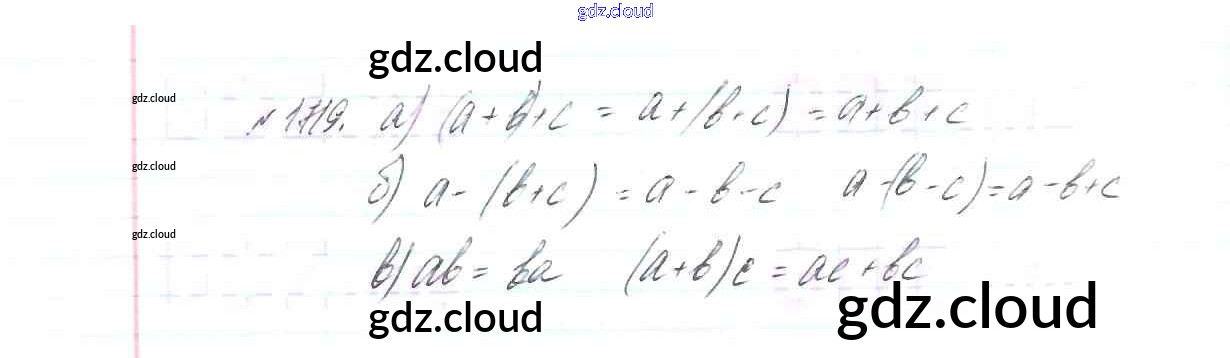 gdz.cloud
gdz.cloud
gdz.cloud
№1719. а) (a+b)+c = a+(b+c) = a+b+c
gdz.cloud
б) a-(b+c) = a-b-c a-(b-c)=a-b+c
gdz.cloud
в) ab = ba (a+b)c = ac+bc
gdz.cloud
gdz.cloud